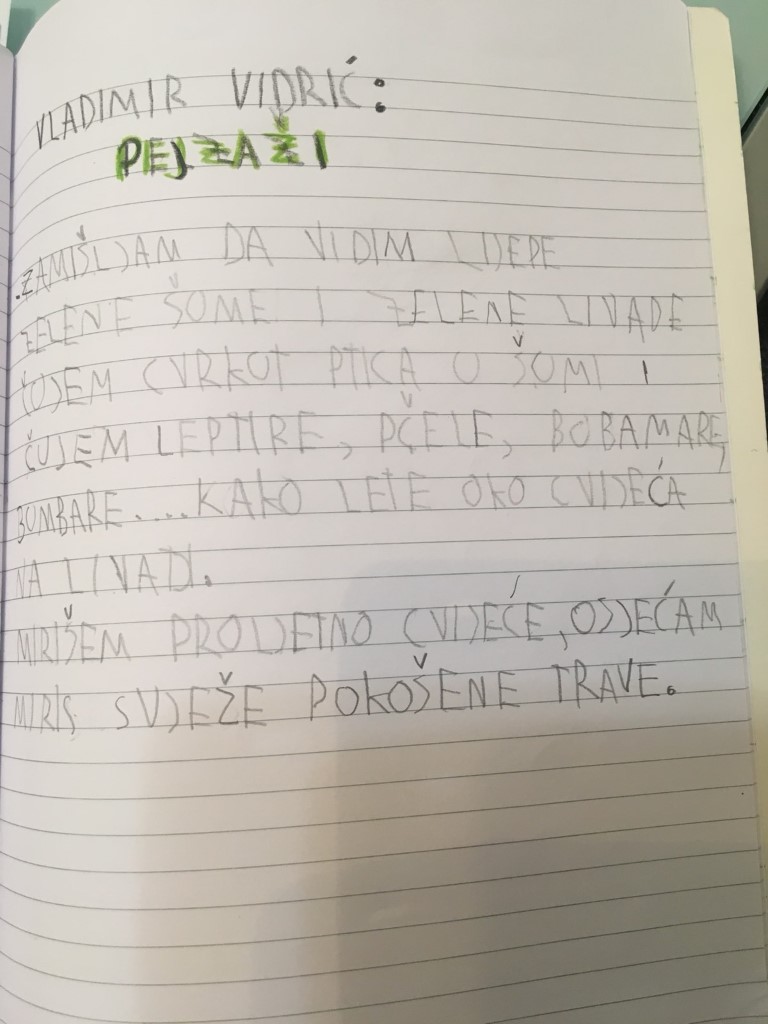 VLADIMIR VIDRIĆ:
PEJZAŽI
ZAMIŠLJAM DA VIDIM LIJEPE
ZELENE ŠUME I ZELENE LIVADE
ČUJEM CVRKUT PTICA U ŠUMI I
ČUJEM LEPTIRE, PČELE, BUBAMARE,
BUMBARE....KAKO LETE OKO CVIJEĆA
NA LIVADI.
MIRIŠEM PROLJETNO CVIJEĆE, OSJEĆAM
MIRIS SVJEŽE POKOŠENE TRAVE.